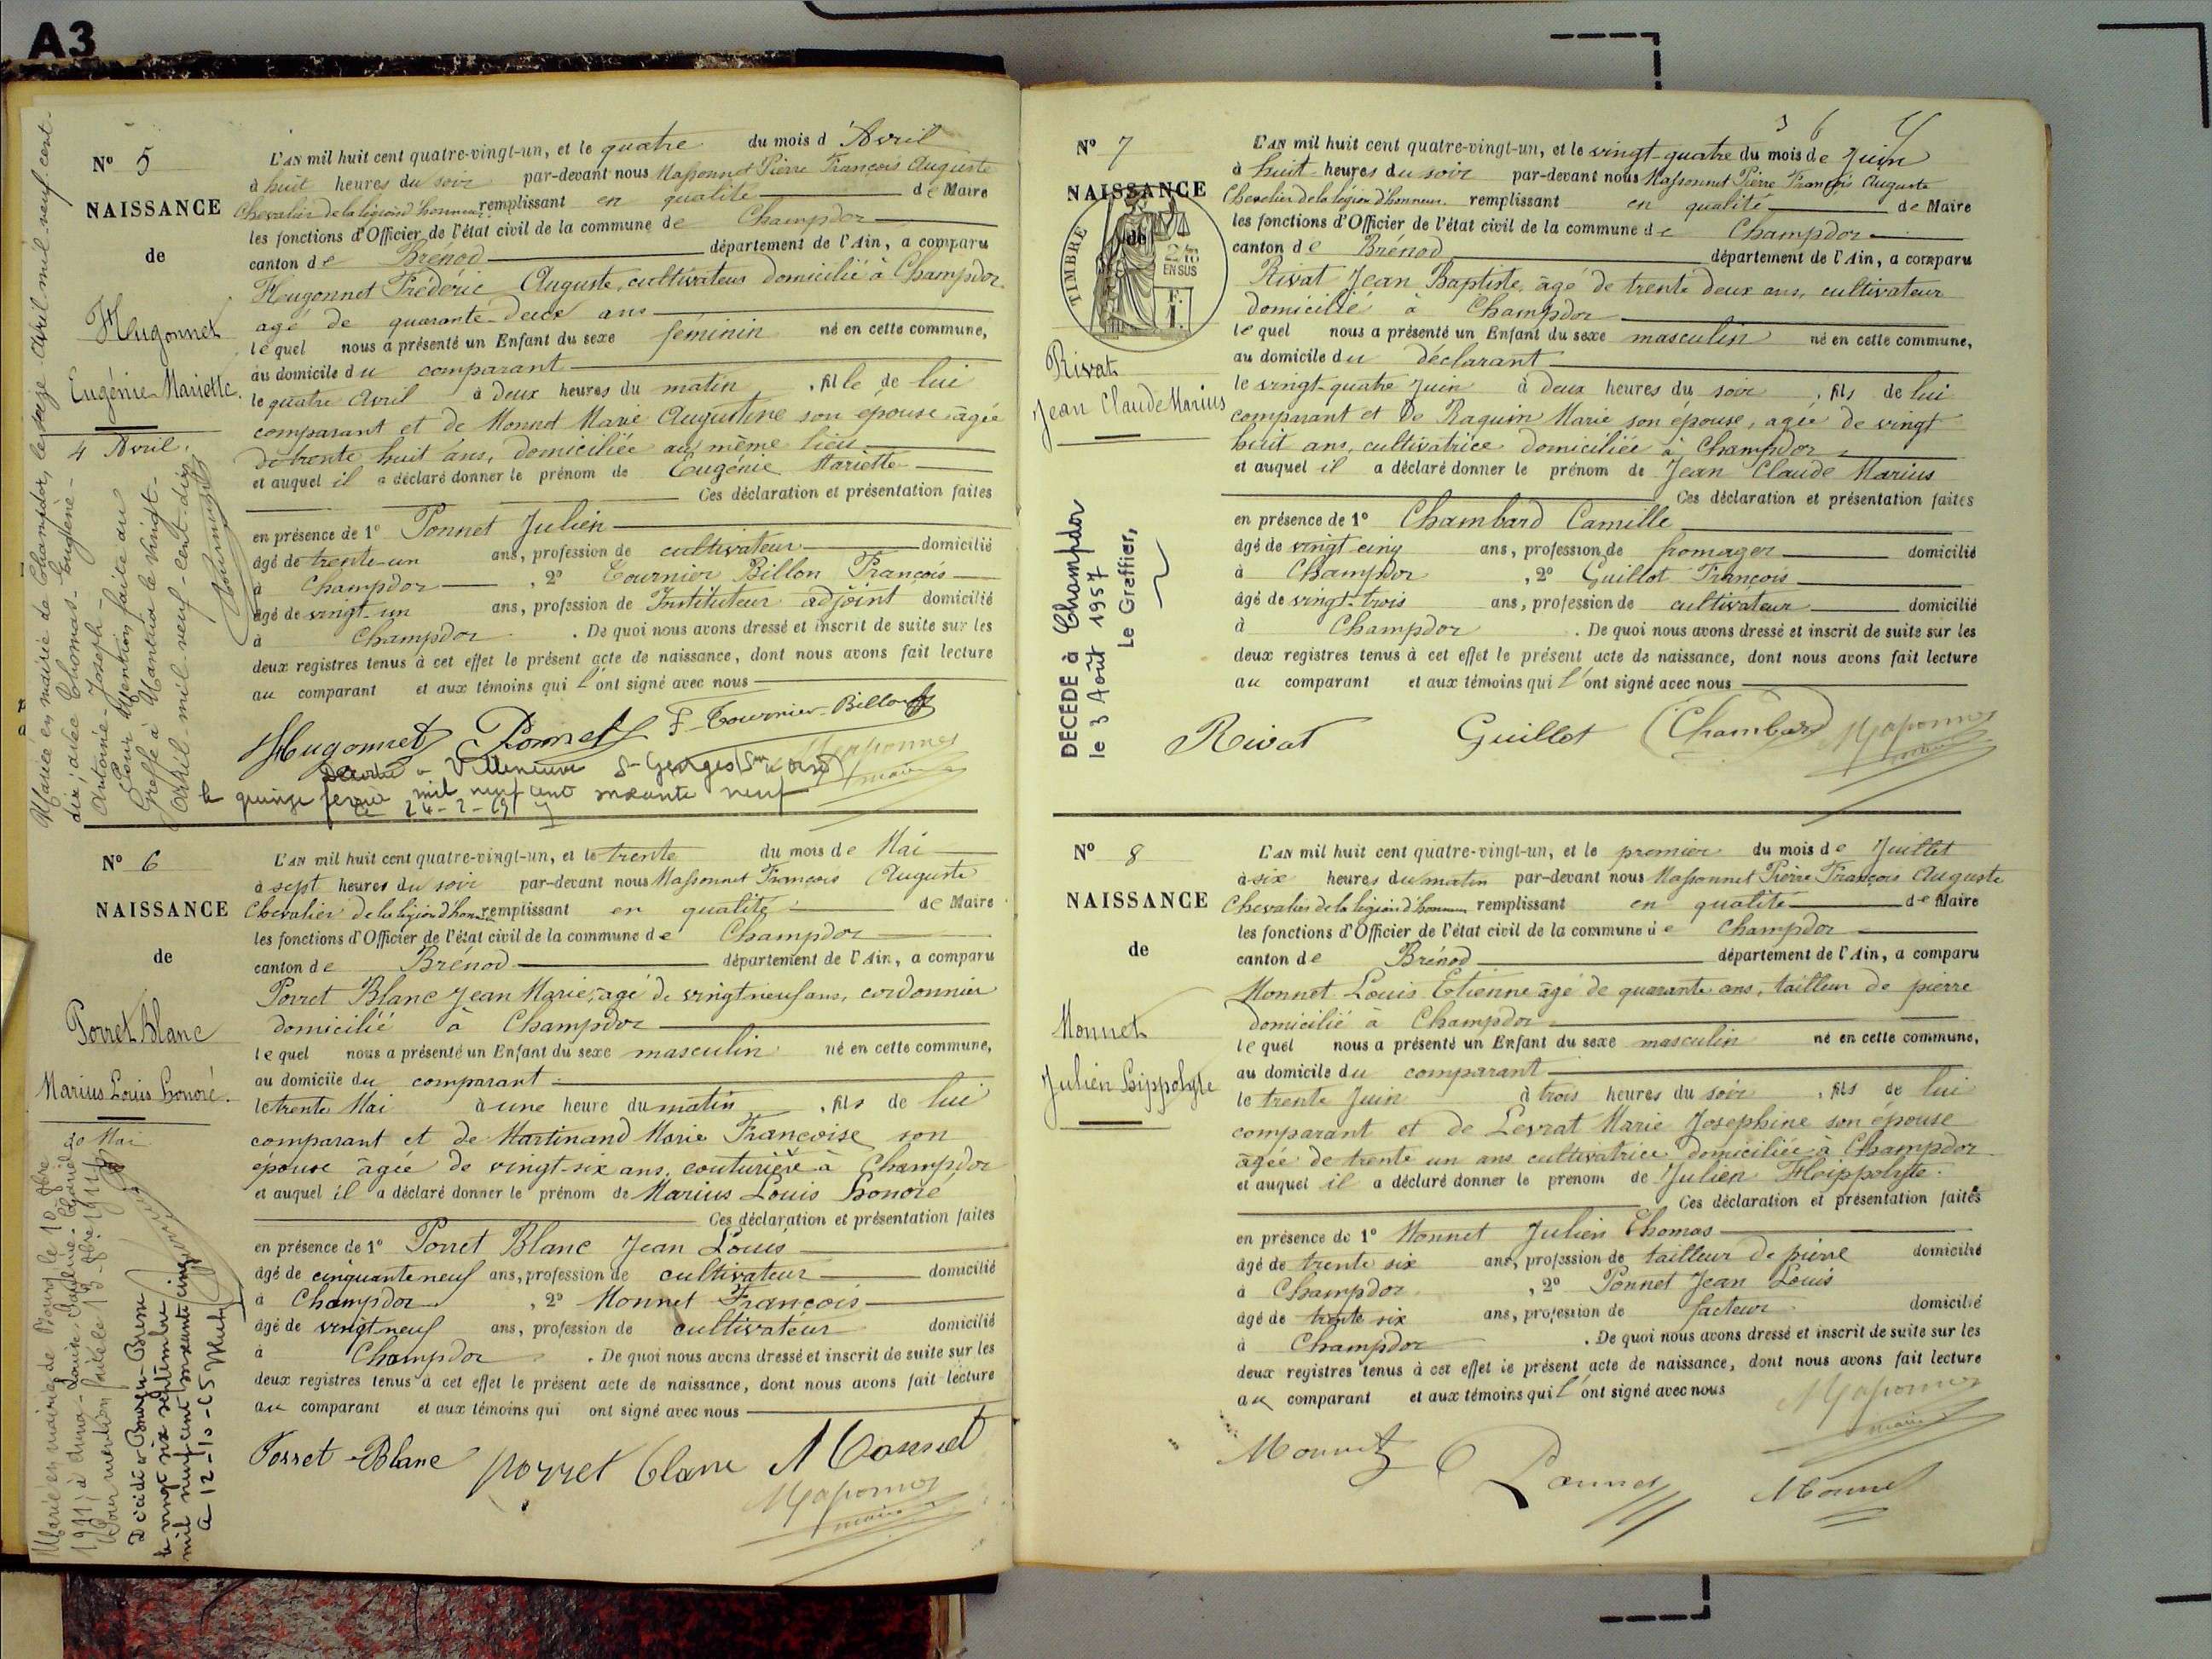 A3
N° 5
NAISSANCE
de
Hugonnet
Eugénie Mariette
4 Avril.
L'AN mil huit cent quatre-vingt-un, et le quatre du mois d'Avril
à huit heures du soir par-devant nous Massonnet Pierre François Auguste
Chevalier de la légion d'honneur remplissant en qualité de Maire
les fonctions d'Officier de l'état civil de la commune de Champdor
canton de Brénod département de l'Ain, a comparu
Hugonnet Frédéric Auguste, cultivateur domicilié à Champdor
agé de quarante-deux ans
lequel nous a présenté un Enfant du sexe féminin né en cette commune,
au domicile du comparant
le quatre Avril à deux heures du matin, fille de lui
comparant et de Monnet Marie Augustine son épouse âgée
de trente huit ans, domiciliée au même lieu
et auquel il a déclaré donner le prénom de Eugénie Mariette
Ces déclaration et présentation faites
en présence de 1° Ponnet Julien
âgé de trente-un ans, profession de cultivateur domicilié
à Champdor, 2° Tournier Billon François
âgé de vingt-un ans, profession de Instituteur adjoint domicilié
à Champdor. De quoi nous avons dressé et inscrit de suite sur les
deux registres tenus à cet effet le présent acte de naissance, dont nous avons fait lecture
au comparant et aux témoins qui l'ont signé avec nous
Hugonnet Ponnet F. Tournier-Billon
Massonnet
maire
Décédée à Villeneuve St Georges (Sne et Oise)
le quinze février mil neuf cent soixante neuf
Le 24-2-69
Mariée en mairie de Champdor, le seize Avril mil neuf cent
dix, avec Chomas- Eugène-
Antoine- Joseph-
Pour Mention faite au
Greffe à Nantua le vingt-
Avril- mil- neuf- cent-dix
N° 6
NAISSANCE
de
Porret Blanc
Marius Louis honoré.
30 Mai
L'AN mil huit cent quatre-vingt-un, et le trente du mois de Mai
à sept heures du soir par-devant nous Massonnet François Auguste
Chevalier de la légion d'honneur remplissant en qualité de Maire
les fonctions d'Officier de l'état civil de la commune de Champdor
canton de Brénod département de l'Ain, a comparu
Porret Blanc Jean Marie, agé de vingt neuf ans, cordonnier
domicilié à Champdor
lequel nous a présenté un Enfant du sexe masculin né en cette commune,
au domicile du comparant
le trente Mai à une heure du matin, fils de lui
comparant et de Martinand Marie Françoise son
épouse âgée de vingt-six ans, couturière à Champdor
et auquel il a déclaré donner le prénom de Marius Louis honoré
Ces déclaration et présentation faites
en présence de 1° Porret Blanc Jean Louis
âgé de cinquante neuf ans, profession de cultivateur domicilié
à Champdor, 2° Monnet François
âgé de vingt neuf ans, profession de cultivateur domicilié
à Champdor. De quoi nous avons dressé et inscrit de suite sur les
deux registres tenus à cet effet le présent acte de naissance, dont nous avons fait lecture
au comparant et aux témoins qui ont signé avec nous
Porret-Blanc porret blanc Monnet
Massonnet
maire
Marié en mairie de Bourg le 10
1911, à
Pour mention faite le
Décédé à Bourg-en-Bresse
le vingt six septembre
mil neuf cent soixante cinq
N° 7
NAISSANCE
de
TIMBRE
EN SUS
Rivat
Jean Claude Marius
DÉCÉDÉ à Champdor
le 3 Août 1957
Le Greffier,
L'AN mil huit cent quatre-vingt-un, et le vingt-quatre du mois de Juin
à huit heures du soir par-devant nous Massonnet Pierre François Auguste
Chevalier de la légion d'honneur remplissant en qualité de Maire
les fonctions d'Officier de l'état civil de la commune de Champdor
canton de Brénod département de l'Ain, a comparu
Rivat Jean Baptiste âgé de trente deux ans, cultivateur
domicilié à Champdor
lequel nous a présenté un Enfant du sexe masculin né en cette commune,
au domicile du déclarant
le vingt-quatre Juin à deux heures du soir, fils de lui
comparant et de Raquin Marie son épouse, agée de vingt
huit ans, cultivatrice domiciliée à Champdor
et auquel il a déclaré donner le prénom de Jean Claude Marius
Ces déclaration et présentation faites
en présence de 1° Chambard Camille
âgé de vingt cinq ans, profession de fromager domicilié
à Champdor, 2° Guillot François
âgé de vingt-trois ans, profession de cultivateur domicilié
à Champdor. De quoi nous avons dressé et inscrit de suite sur les
deux registres tenus à cet effet le présent acte de naissance, dont nous avons fait lecture
au comparant et aux témoins qui l'ont signé avec nous
Rivat Guillot Chambard Massonnet
maire
N° 8
NAISSANCE
de
Monnet
Julien Hippolyte
L'AN mil huit cent quatre-vingt-un, et le premier du mois de Juillet
à six heures du matin par-devant nous Massonnet Pierre François Auguste
Chevalier de la légion d'honneur remplissant en qualité de Maire
les fonctions d'Officier de l'état civil de la commune de Champdor
canton de Brénod département de l'Ain, a comparu
Monnet Louis Etienne âgé de quarante ans, tailleur de pierre
domicilié à Champdor
lequel nous a présenté un Enfant du sexe masculin né en cette commune,
au domicile du comparant
le trente Juin à trois heures du soir, fils de lui
comparant et de Levrat Marie Josephine son épouse
âgée de trente un ans cultivatrice domiciliée à Champdor
et auquel il a déclaré donner le prénom de Julien Hippolyte.
Ces déclaration et présentation faites
en présence de 1° Monnet Julien Thomas
âgé de trente six ans, profession de tailleur de pierre domicilié
à Champdor, 2° Ponnet Jean Louis
âgé de trente six ans, profession de facteur domicilié
à Champdor. De quoi nous avons dressé et inscrit de suite sur les
deux registres tenus à cet effet le présent acte de naissance, dont nous avons fait lecture
au comparant et aux témoins qui l'ont signé avec nous
Massonnet
maire
Monnet Ponnet Monnet